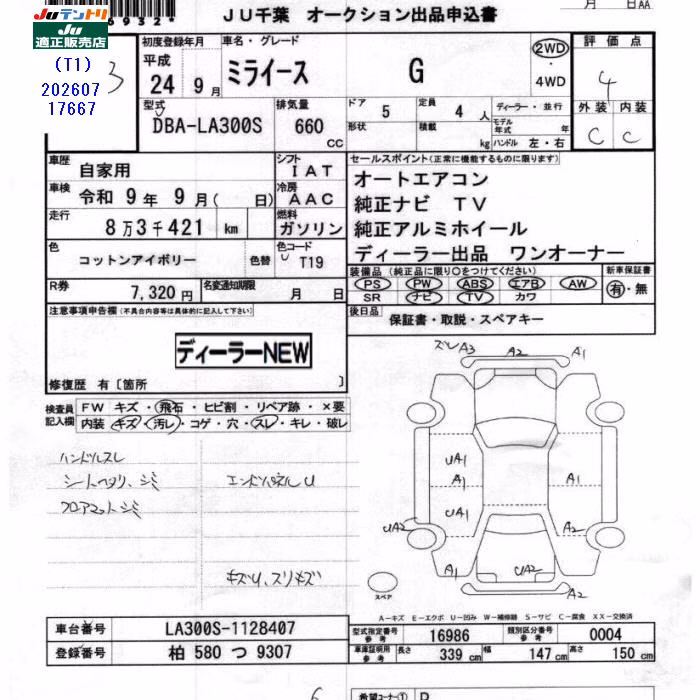 JUテントリ
JU適正販売店
(T1)
202607
17667
6932*
3
月 日AA
JU千葉 オークション出品申込書
初度登録年月
平成
24 9月
車名・グレード
ミライース G
2WD
4WD
評価点
4
外装 内装
C C
型式
DBA-LA300S
排気量
660 CC
ドア 5
形状
定員 4人
積載 kg
ディーラー・並行
モデル年式 年
ハンドル 左・右
車歴 自家用
シフト IAT
車検 令和 9年 9月( 日)
冷房 AAC
走行 8万3千421 km
燃料 ガソリン
色 コットンアイボリー 色替
色コード T19
R券 7,320円
名変通知期限 月 日
セールスポイント(正常に機能するものに限ります)
オートエアコン
純正ナビ TV
純正アルミホイール
ディーラー出品 ワンオーナー
装備品(純正品に限り○をつけてください)
PS PW ABS エアB AW
SR ナビ TV カワ
新車保証書
有・無
後日品
保証書・取説・スペアキー
注意事項申告欄(不具合内容等は具体的に記入して下さい)
ディーラーNEW
修復歴 有〔箇所 〕
検査員記入欄
FW キズ・飛石・ヒビ割・リペア跡・×要
内装 キズ・汚レ・コゲ・穴・スレ・キレ・破レ
ハンドルスレ
シートヘタリ、シミ
フロアマットシミ
エンドパネルU
キズU、スリキズ
ズレA3 A2 A1
UA1
A1 A1
UA1
UA2 A2
A1 UA2 A1
A2
スペア
A-キズ E-エクボ U-凹み W-補修跡 S-サビ C-腐食 XX-交換済
車台番号 LA300S-1128407
登録番号 柏 580 つ 9307
型式指定番号参考 16986
類別区分番号参考 0004
車庫証明用参考 長さ 339 cm 幅 147 cm 高さ 150 cm
希望コーナー① D